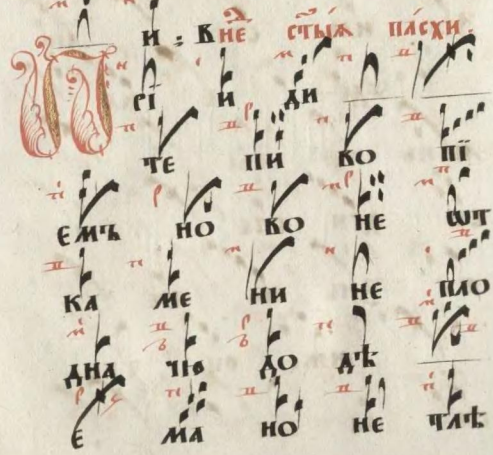 и : В не ст҃ыѧ пасхи.
П рі и ди
те пи во пї
емъ но во не ѿт
ка ме ни не пло
дна чю до дѣ
е ма но не тлѣ